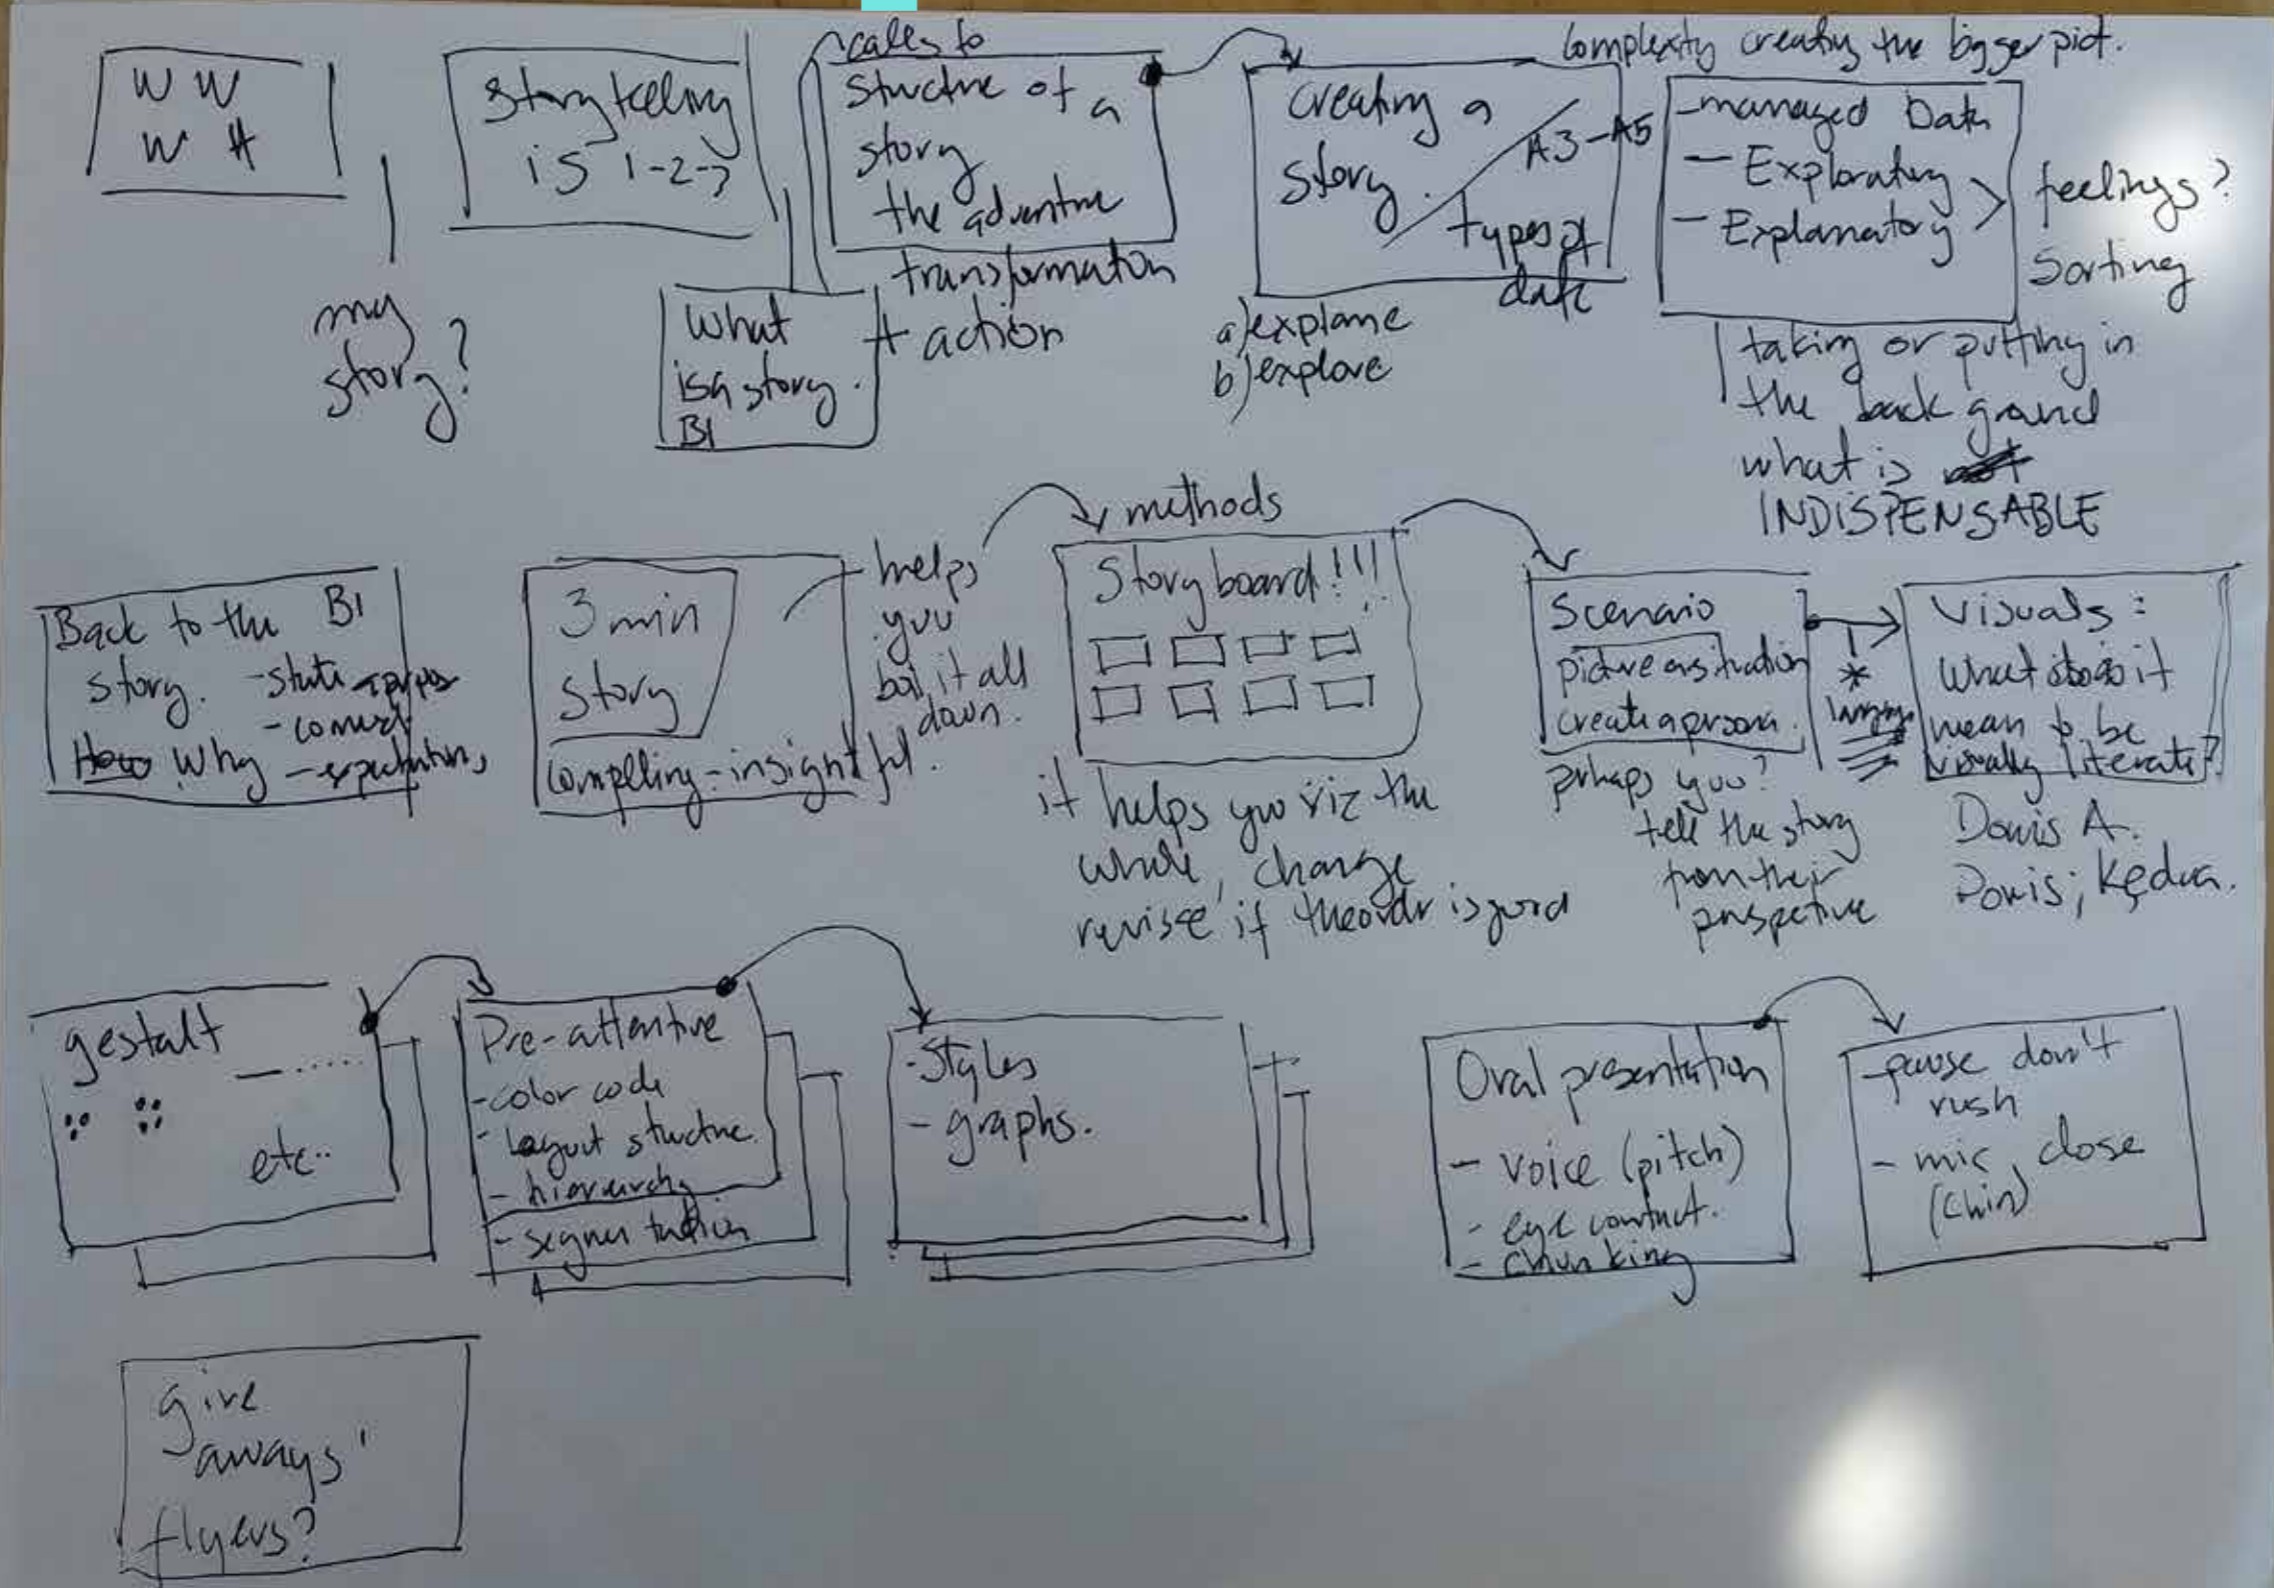 W W
W H
my
story?
Storytelling
is 1-2-3
What
is a story.
BI
calls to
structure of a
story
the adventure
transformation
+ action
creating a
story.
A3-A5
types of
data
a) explane
b) explore
Complexity creating the bigger pict.
- managed Data
- Exploratory
- Explanatory
feelings?
Sorting
taking or putting in
the back ground
what is
INDISPENSABLE
Back to the BI
story. - state
- connect
How Why - expectations
3 min
story
compelling - insightful.
helps
you
boil it all
down.
methods
Storyboard!!!
it helps you viz the
whole, change
revise if the order is good
Scenario
picture a situation
create a persona.
perhaps you?
tell the story
from their
perspective
*
Visuals:
What does it
mean to be
visually literate?
Donis A.
Donis;
gestalt
etc..
Pre-attentive
- color code
- Layout structure.
- hierarchy
- segmentation
- Styles
- graphs.
Oral presentation
- voice (pitch)
- eye contact.
- chunking
- pause don't
rush
- mic, close
(chin)
give
'aways'
flyers?